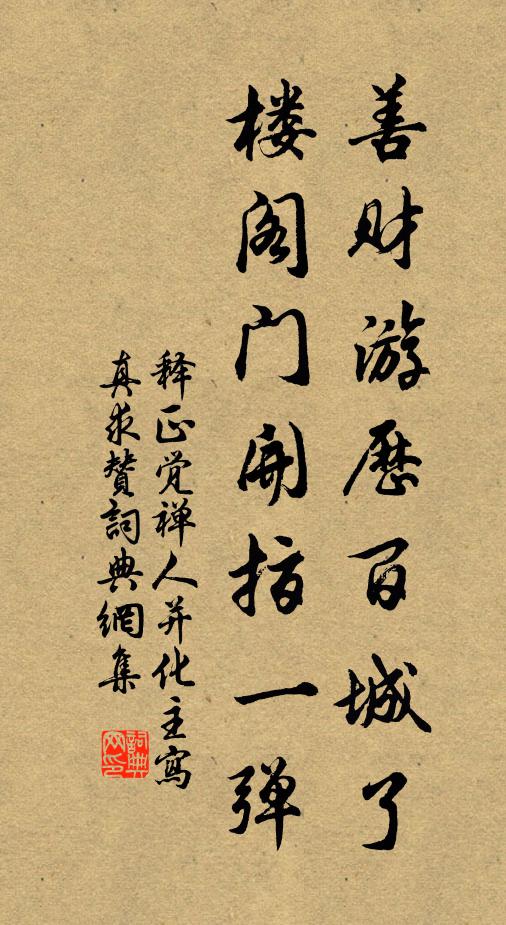 善财游历百城了
楼阁门开指一弹
释正觉禅人并化主寫
真求赞詞典網集
詞典网印